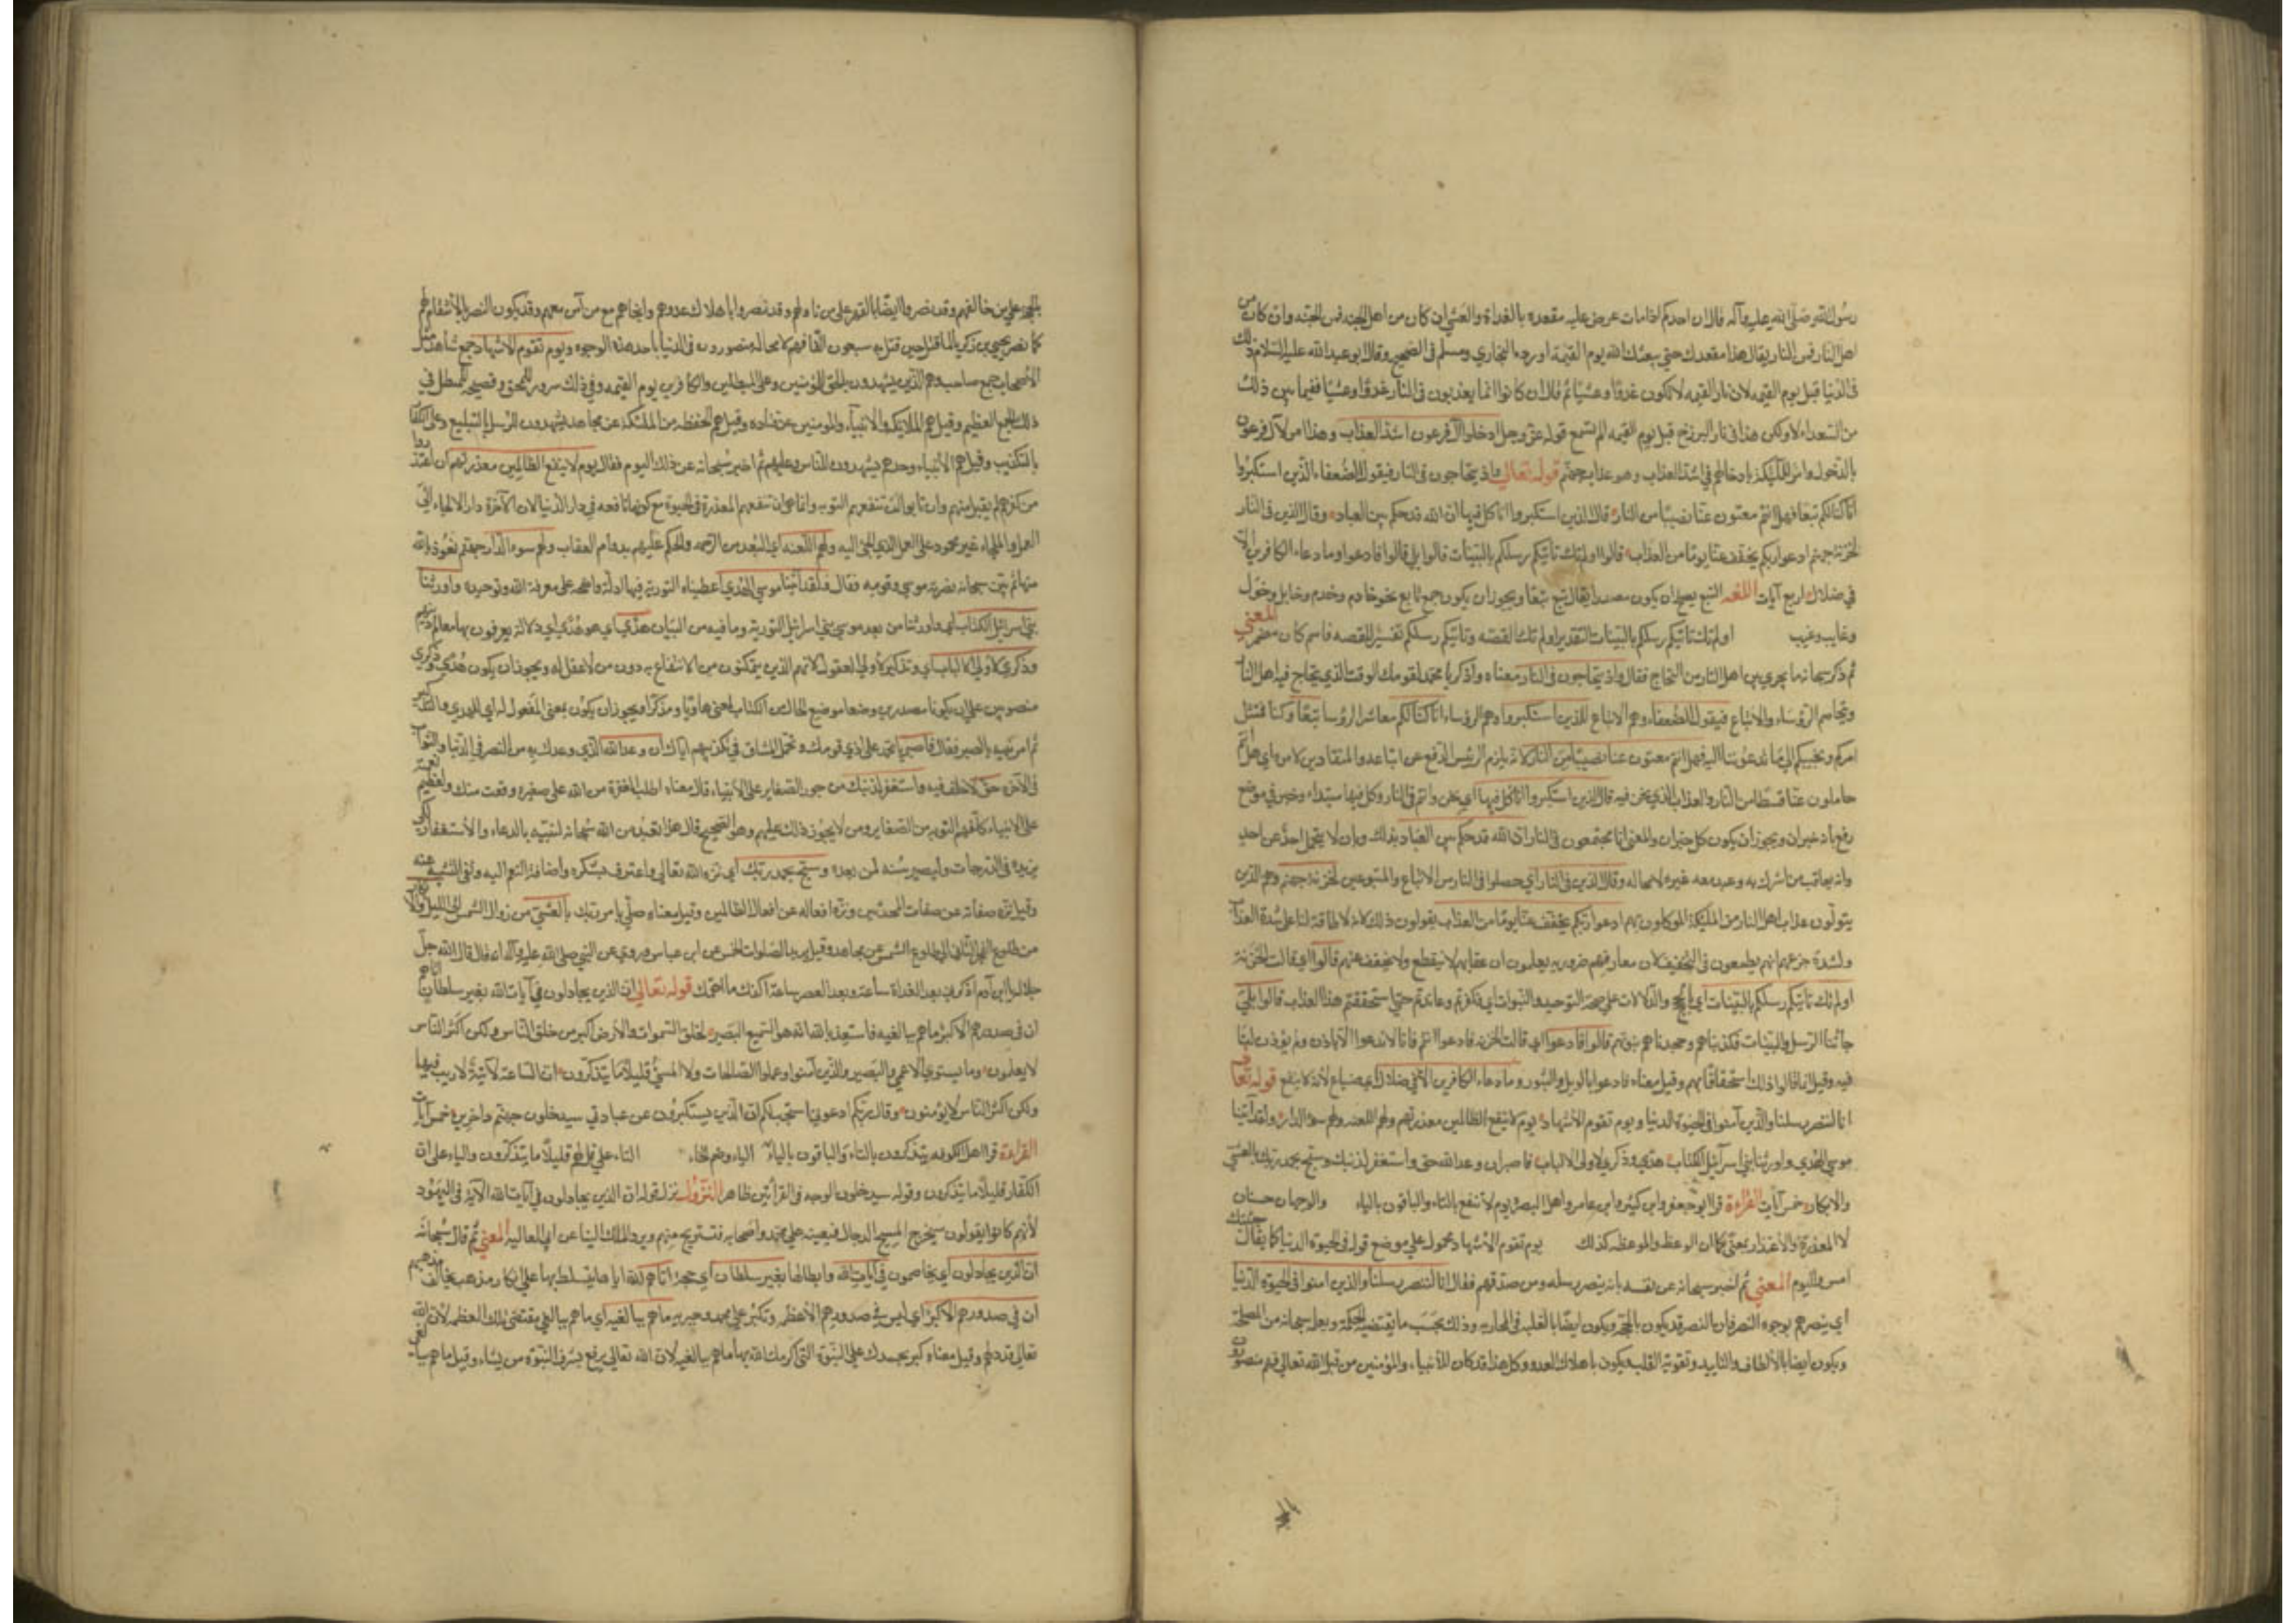 رسول الله صلى الله عليه وآله قال ان احدكم اذا مات عرض عليه مقعده بالغداة والعشي ان كان من اهل الجنة فمن الجنة وان كان من
اهل النار فمن النار يقال هذا مقعدك حتى يبعثك الله يوم القيمة اورده البخاري ومسلم في الصحيح وقال ابو عبد الله عليه السلام ذلك
في الدنيا قبل يوم القيمة لان نار القيمة لا تكون غدوا وعشيا ثم قال ان كانوا انما يعذبون في النار غدوا وعشيا ففيما بين ذلك
من السعداء لا ولكن هذا في نار البرزخ قبل يوم القيمة الم تسمع قوله عز وجل ادخلوا آل فرعون اشد العذاب وهذا امر لآل فرعون
بالدخول وامر للملئكة بادخالهم في اشد العذاب وهو عذاب جهنم قوله تعالى واذ يتحاجون في النار فيقول الضعفاء للذين استكبروا
انا كنا لكم تبعا فهل انتم مغنون عنا نصيبا من النار قال الذين استكبروا انا كل فيها ان الله قد حكم بين العباد وقال الذين في النار
لخزنة جهنم ادعوا ربكم يخفف عنا يوما من العذاب قالوا اولم تك تاتيكم رسلكم بالبينات قالوا بلى قالوا فادعوا وما دعاء الكافرين الا
في ضلال اربع آيات اللغة التبع يصلح ان يكون مصدرا يقال تبع تبعا ويجوز ان يكون جمع تابع نحو خادم وخدم وخايل وخول
وغايب وغيب اولم تك تاتيكم رسلكم بالبينات التقدير اولم تك القصة وتاتيكم رسلكم تفسير للقصة فاسم كان مضمر المعنى
ثم ذكر سبحانه ما يجري بين اهل النار من التحاج فقال واذ يتحاجون في النار معناه واذكر يا محمد لقومك الوقت الذي يتحاج فيه اهل النار
ويتخاصم الرؤساء والاتباع فيقول الضعفاء وهم الاتباع للذين استكبروا وهم الرؤساء انا كنا لكم معاشر الرؤسا تبعا وكنا نمتثل
امركم ونجيبكم الى ما تدعوننا اليه فهل انتم مغنون عنا نصيبا من النار لانه يلزم الرئيس الدفع عن اتباعه والمنقادين لامره اي هل انتم
حاملون عنا قسطا من النار والعذاب الذي نحن فيه قال الذين استكبروا انا كل فيها اي نحن وانتم في النار وكل فيها مبتداء وخبر في موضع
رفع بانه خبر ان ويجوز ان يكون كل خبر ان والمعنى انا مجتمعون في النار ان الله قد حكم بين العباد بذلك وبان لا يتحمل احد عن احد
وانه يعاقب من اشرك به وعبد معه غيره لا محالة وقال الذين في النار اي حصلوا في النار من الاتباع والمتبوعين لخزنة جهنم وهم الذين
يتولون عذاب اهل النار من الملئكة الموكلون بهم ادعوا ربكم يخفف عنا يوما من العذاب يقولون ذلك لانه لا طاقة لنا على شدة العذاب
ولشدة جزعهم لا انهم يطمعون في التخفيف لان معارفهم ضرورية يعلمون ان عقابهم لا ينقطع ولا يخفف عنهم قالوا اي قالت الخزنة
اولم تك تاتيكم رسلكم بالبينات اي بالحجج والدلالات على صحة التوحيد والنبوات اي فكفرتم وعاندتم حتى استحققتم هذا العذاب قالوا بلى
جاءتنا الرسل والبينات فكذبناهم وجحدنا نبوتهم قالوا فادعوا اي قالت الخزنة فادعوا انتم فانا لا ندعوا الا باذن ولم يؤذن لنا
فيه وقيل انما قالوا ذلك استخفافا بهم وقيل معناه فادعوا بالويل والثبور وما دعاء الكافرين الا في ضلال اي في ضياع لانه لا ينفع قوله تعالى
انا لننصر رسلنا والذين آمنوا في الحيوة الدنيا ويوم تقوم الاشهاد يوم لا ينفع الظالمين معذرتهم ولهم اللعنة ولهم سوء الدار ولقد آتينا
موسى الهدى واورثنا بني اسرائيل الكتاب هدى وذكرى لاولي الالباب فاصبر ان وعد الله حق واستغفر لذنبك وسبح بحمد ربك بالعشي
والابكار خمس آيات القراءة قرا ابو جعفر وابن كثير وابن عامر واهل البصرة يوم لا تنفع بالتاء والباقون بالياء والوجهان حسنان
لان المعذرة والاعتذار بمعنى كما ان الوعظ والموعظة كذلك يوم تقوم الاشهاد محمول على موضع قوله في الحيوة الدنيا كما يقال جئتك
امس واليوم المعنى ثم اخبر سبحانه عن نفسه بانه ينصر رسله ومن صدقهم فقال انا لننصر رسلنا والذين امنوا في الحيوة الدنيا
اي ننصرهم بوجوه النصر فان النصر قد يكون بالحجة ويكون ايضا بالغلبة في المحاربة وذلك بحسب ما تقتضيه الحكمة ويعلم سبحانه من المصلحة
ويكون ايضا بالالطاف والتاييد وتقوية القلب ويكون باهلاك العدو وكل هذا قد كان للانبياء والمؤمنين من قبل الله تعالى فهم منصورون
بالحجة على من خالفهم وقد نصروا ايضا بالقهر على من ناواهم وقد نصروا باهلاك عدوهم وانجاهم مع من آمن معهم وقد يكون النصر بالانتقام لهم
كما نصر يحيى بن زكريا لما قتل حين قتل به سبعون الفا فهم لا محالة منصورون في الدنيا باحد هذه الوجوه ويوم تقوم الاشهاد جمع شاهد مثل
الاصحاب جمع صاحب وهم الذين يشهدون بالحق للمؤمنين وعلى المبطلين والكافرين يوم القيمة وفي ذلك سرور للمحق وفضيحة للمبطل في
ذلك الجمع العظيم وقيل هم الملايكة والانبياء والمومنين عن قتادة وقيل هم الحفظة من الملئكة عن مجاهد يشهدون للرسل بالتبليغ وعلى الكفار
بالتكذيب وقيل هم الانبياء وحدهم يشهدون للناس وعليهم ثم اخبر سبحانه عن ذلك اليوم فقال يوم لا ينفع الظالمين معذرتهم اي ان اعتذروا
من كفرهم لم يقبل منهم وان تابوا لم تنفعهم التوبة وانما نفى ان تنفعهم المعذرة في الاخرة مع كونها نافعة في دار الدنيا لان الآخرة دار الالجاء الى
العمل والملجاء غير محمود على العمل الذي الجئ اليه ولهم اللعنة اي البعد من الرحمة والحكم عليهم بدوام العقاب ولهم سوء الدار جهنم نعوذ بالله
منها ثم بين سبحانه نصرته موسى وقومه فقال ولقد آتينا موسى الهدى اي اعطيناه التورية فيها ادلة واضحة على معرفة الله وتوحيده واورثنا
بني اسرائيل الكتاب اي واورثنا من بعد موسى بني اسرائيل التورية وما فيه من البيان هدى اي هو هدى اي دلالة يعرفون بها معالم دينهم
وذكرى لاولي الالباب اي وتذكير لاولي العقول لانهم الذين يتمكنون من الانتفاع به دون من لا عقل له ويجوز ان يكون هدى وذكرى
منصوبين على ان يكونا مصدرين وضعا موضع الحال من الكتاب بمعنى هاديا ومذكرا ويجوز ان يكون بمعنى المفعول له اي للهدى والتذكير
ثم امر نبيه بالصبر فقال فاصبر يا محمد على اذى قومك وتحمل المشاق في تكذيبهم اياك ان وعد الله الذي وعدك به من النصر في الدنيا والثواب
في الآخرة حق لا خلف فيه واستغفر لذنبك من جوز الصغاير على الانبياء قال معناه اطلب المغفرة من الله على صغيرة وقعت منك ولعظيم نعمته
على الانبياء كلفهم التوبة من الصغاير ومن لا يجوز ذلك عليهم وهو الصحيح قال هذا تعبد من الله سبحانه لنبيه بالدعاء والاستغفار لكي
يزيده في الدرجات وليصير سنة لمن بعده وسبح بحمد ربك اي نزه الله تعالى واعترف بشكره واضافة النعم اليه ونفي التشبيه عنه
وقيل نزه صفاته عن صفات المحدثين ونزه افعاله عن افعال الظالمين وقيل معناه صل بامر ربك بالعشي من زوال الشمس الى الليل والابكار
من طلوع الفجر الثاني الى طلوع الشمس عن مجاهد وقيل يريد الصلوات الخمس عن ابن عباس وروي عن النبي صلى الله عليه وآله انه قال قال الله جل
جلاله يا ابن آدم اذكرني بعد الغداة ساعة وبعد العصر ساعة اكفك ما اهمك قوله تعالى ان الذين يجادلون في آيات الله بغير سلطان اتاهم
ان في صدورهم الا كبر ما هم ببالغيه فاستعذ بالله انه هو السميع البصير لخلق السموات والارض اكبر من خلق الناس ولكن اكثر الناس
لا يعلمون وما يستوي الاعمى والبصير والذين آمنوا وعملوا الصالحات ولا المسيء قليلا ما يتذكرون ان الساعة لآتية لا ريب فيها
ولكن اكثر الناس لا يؤمنون وقال ربكم ادعوني استجب لكم ان الذين يستكبرون عن عبادتي سيدخلون جهنم داخرين خمس آيات
القراءة قرا اهل الكوفة تتذكرون بالتاء والباقون بالياء الياء وضم الخاء التاء على قل لهم قليلا ما يتذكرون والياء على ان
الكفار قليلا ما يتذكرون وقوله سيدخلون الوجه في القراءتين ظاهر النزول نزل قوله ان الذين يجادلون في آيات الله الآية في اليهود
لانهم كانوا يقولون سيخرج المسيح الدجال فنعينه على محمد واصحابه فنستريح منهم ويرد الملك الينا عن ابي العالية المعنى ثم قال سبحانه
ان الذين يجادلون اي يخاصمون في آيات الله وابطالها بغير سلطان اي حجة اتاهم الله اياها يتسلط بها على انكار مذهب يخالف مذهبهم
ان في صدورهم الا كبر اي ليس في صدورهم الا عظمة وتكبر على محمد وجبرية ما هم ببالغيه اي ما هم ببالغي مقتضى تلك العظمة لان الله
تعالى مذلهم وقيل معناه كبر بحسدك على النبوة التي اكرمك الله بها ما هم ببالغيه لان الله تعالى يرفع بشرف النبوة من يشاء وقيل ما هم